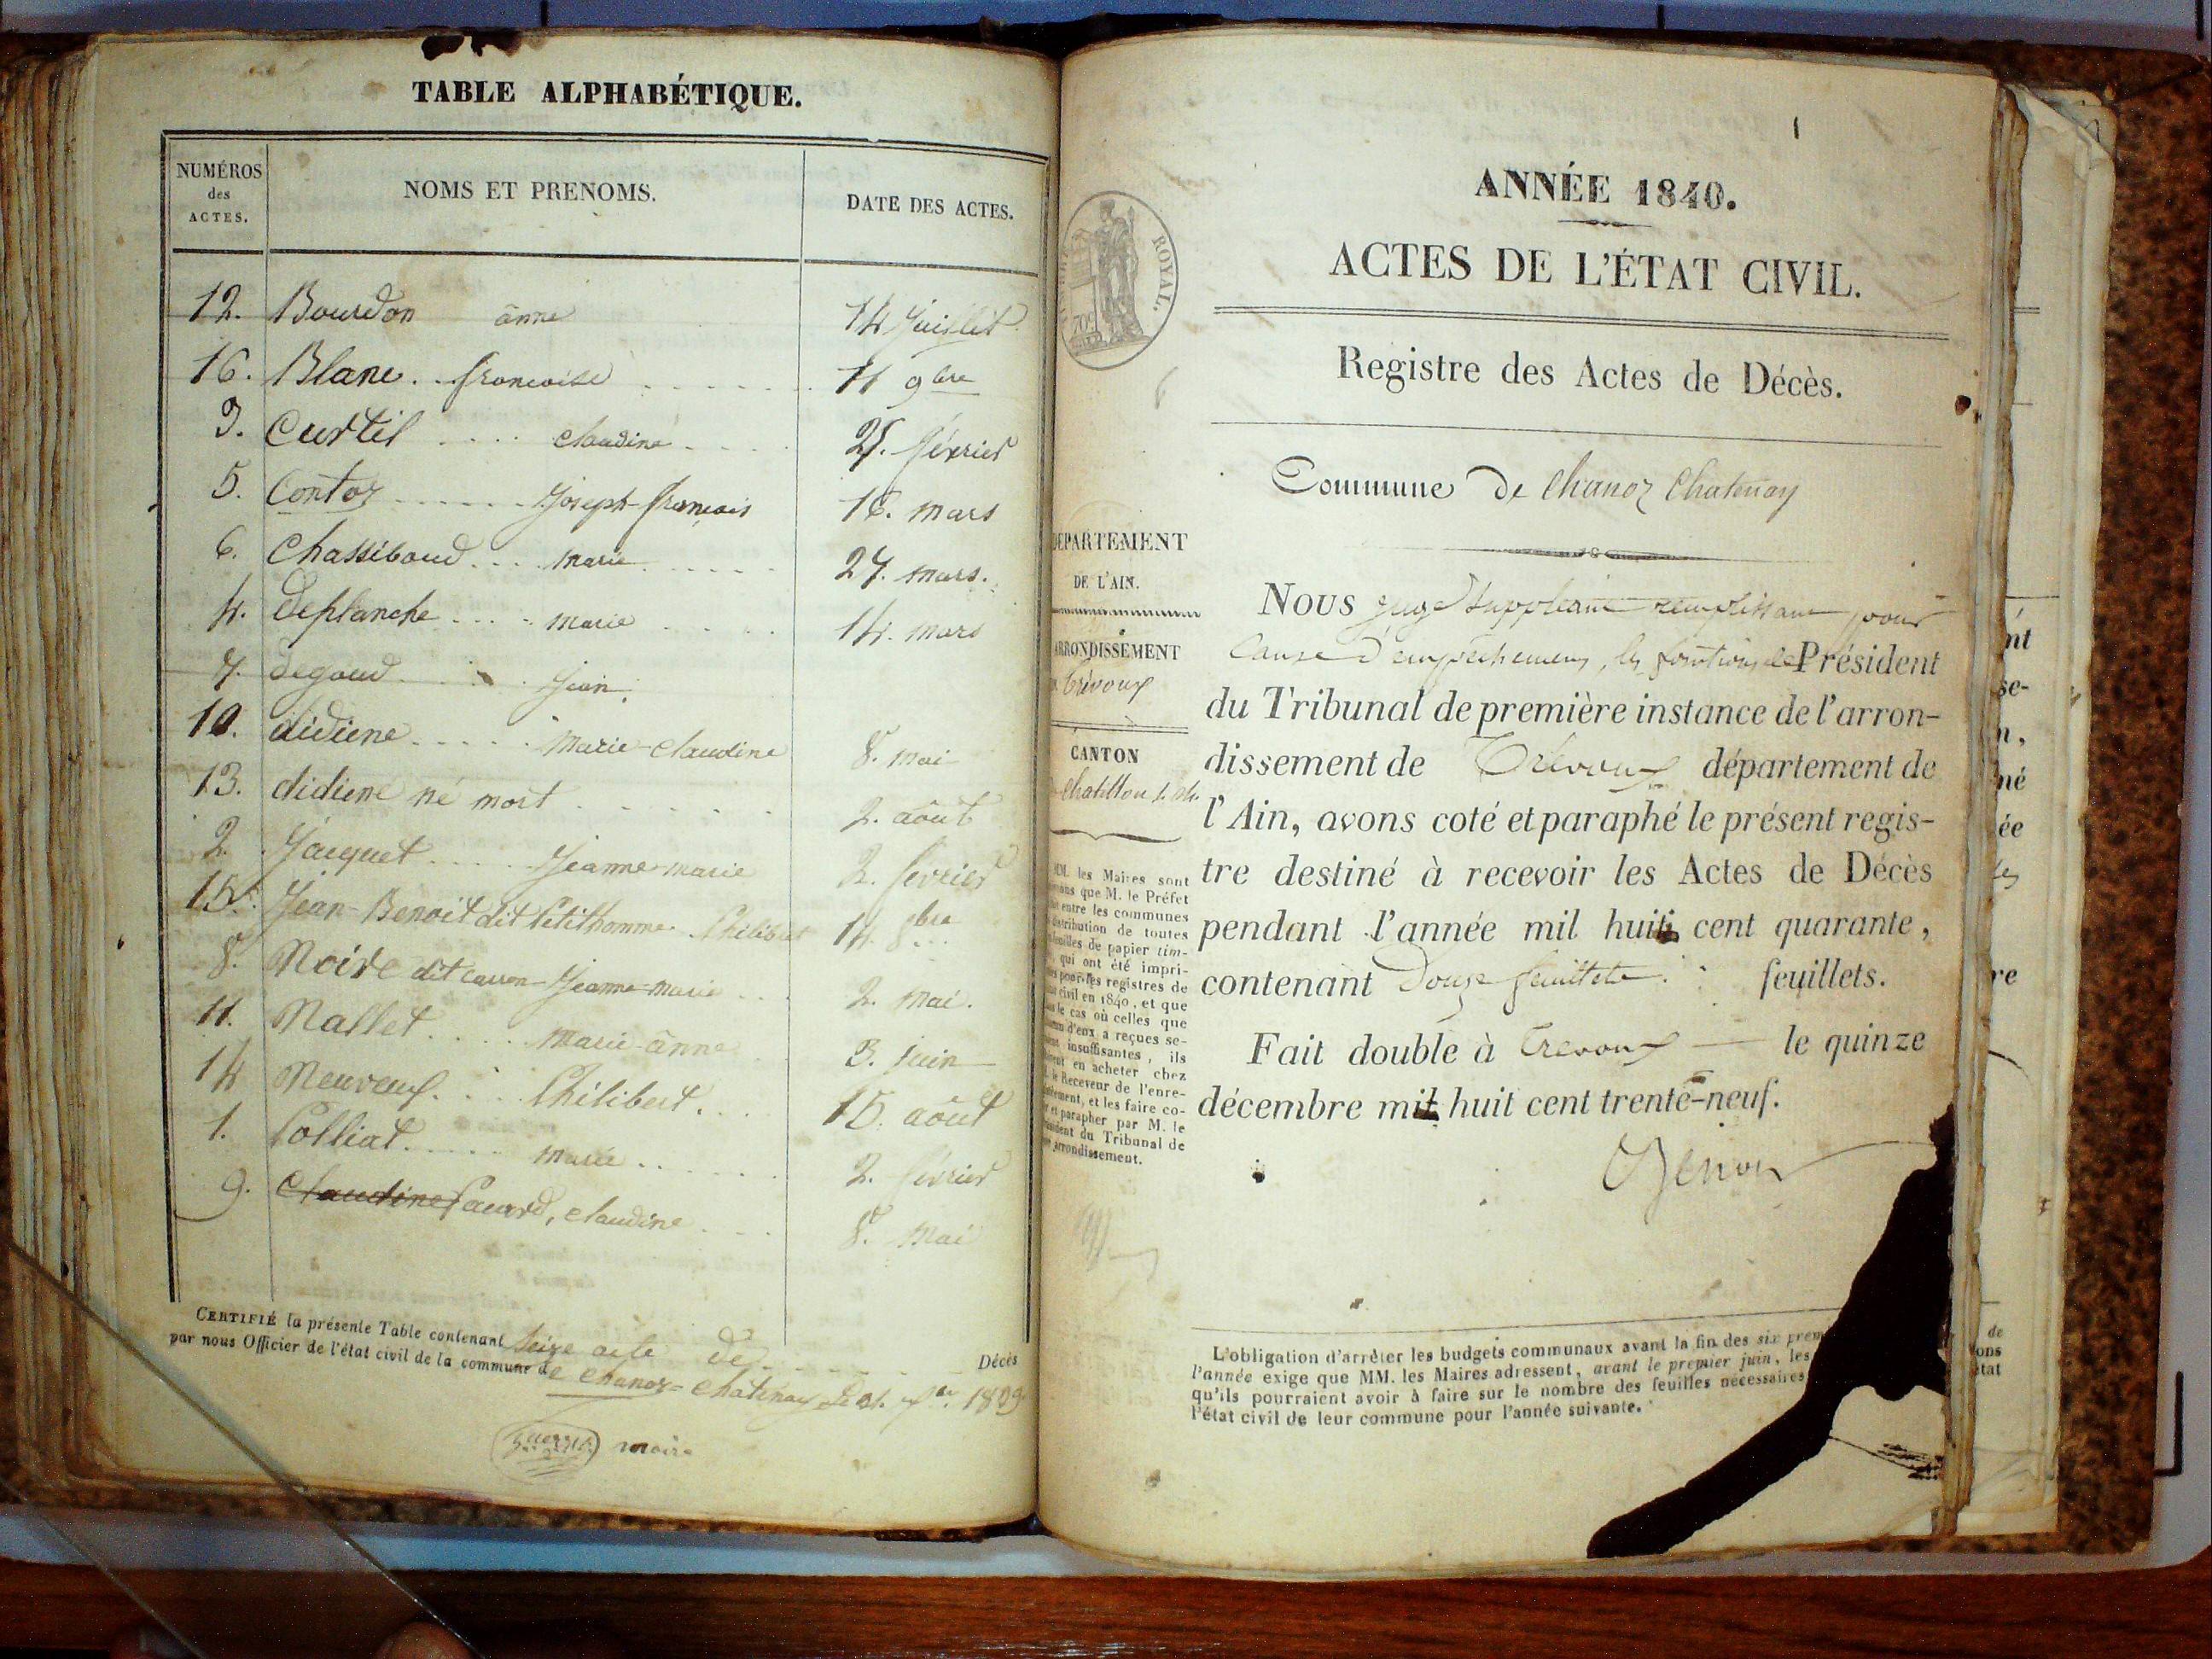 TABLE ALPHABÉTIQUE.
NUMÉROS des ACTES. NOMS ET PRENOMS. DATE DES ACTES.
12. Bourdon anne 14 Juillet
16. Blanc françoise 11 9bre
3. Curtil claudine février
5. Contoz Joseph-françois 16. mars
6. Chassiboud marie 27. mars.
4. deplanche marie 14. mars
7. degoud Jean
10. didiene Marie-claudine 8. mai
13. didiene né mort 2. août
2. Jacquet Jeanne-marie 2. fevrier
15. Jean-Benoit dit Petithomme Philibert 14. 8bre
8. Noire dit carron Jeanne-marie 2. mai.
11. Nallet marie-anne 3. Juin
14 Neuveux Philibert. 15. août
1. Polliat marie 2. février
9. Claudine Pauvrd, claudine 8. Mai
CERTIFIÉ la présente Table contenant Seize acte de Décès
par nous Officier de l'état civil de la commune de Chanoz-Chatenay 1839
maire
1
ANNÉE 1840.
ACTES DE L'ÉTAT CIVIL.
ROYAL.
Registre des Actes de Décès.
Commune de Chanoz Chatenay
DEPARTEMENT
DE L'AIN.
ARRONDISSEMENT
Trévoux
CANTON
Chatillon s. Ch.
MM. les Maires sont
que M. le Préfet
entre les communes
distribution de toutes
feuilles de papier tim-
qui ont été impri-
pour les registres de
civil en 1840, et que
le cas où celles que
d'eux a reçues se-
insuffisantes, ils
en acheter chez
le Receveur de l'enre-
et les faire co-
et parapher par M. le
du Tribunal de
arrondissement.
Nous Juge Suppléant remplissant pour
Cause d'empêchement, les fonctions de Président
du Tribunal de première instance de l'arron-
dissement de Trévoux département de
l'Ain, avons coté et paraphé le présent regis-
tre destiné à recevoir les Actes de Décès
pendant l'année mil huit cent quarante,
contenant Douze feuillets feuillets.
Fait double à Trevoux le quinze
décembre mil huit cent trente-neuf.
L'obligation d'arrêter les budgets communaux avant la fin des six prem
l'année exige que MM. les Maires adressent, avant le premier juin, les
qu'ils pourraient avoir à faire sur le nombre des feuilles nécessaires
l'état civil de leur commune pour l'année suivante.